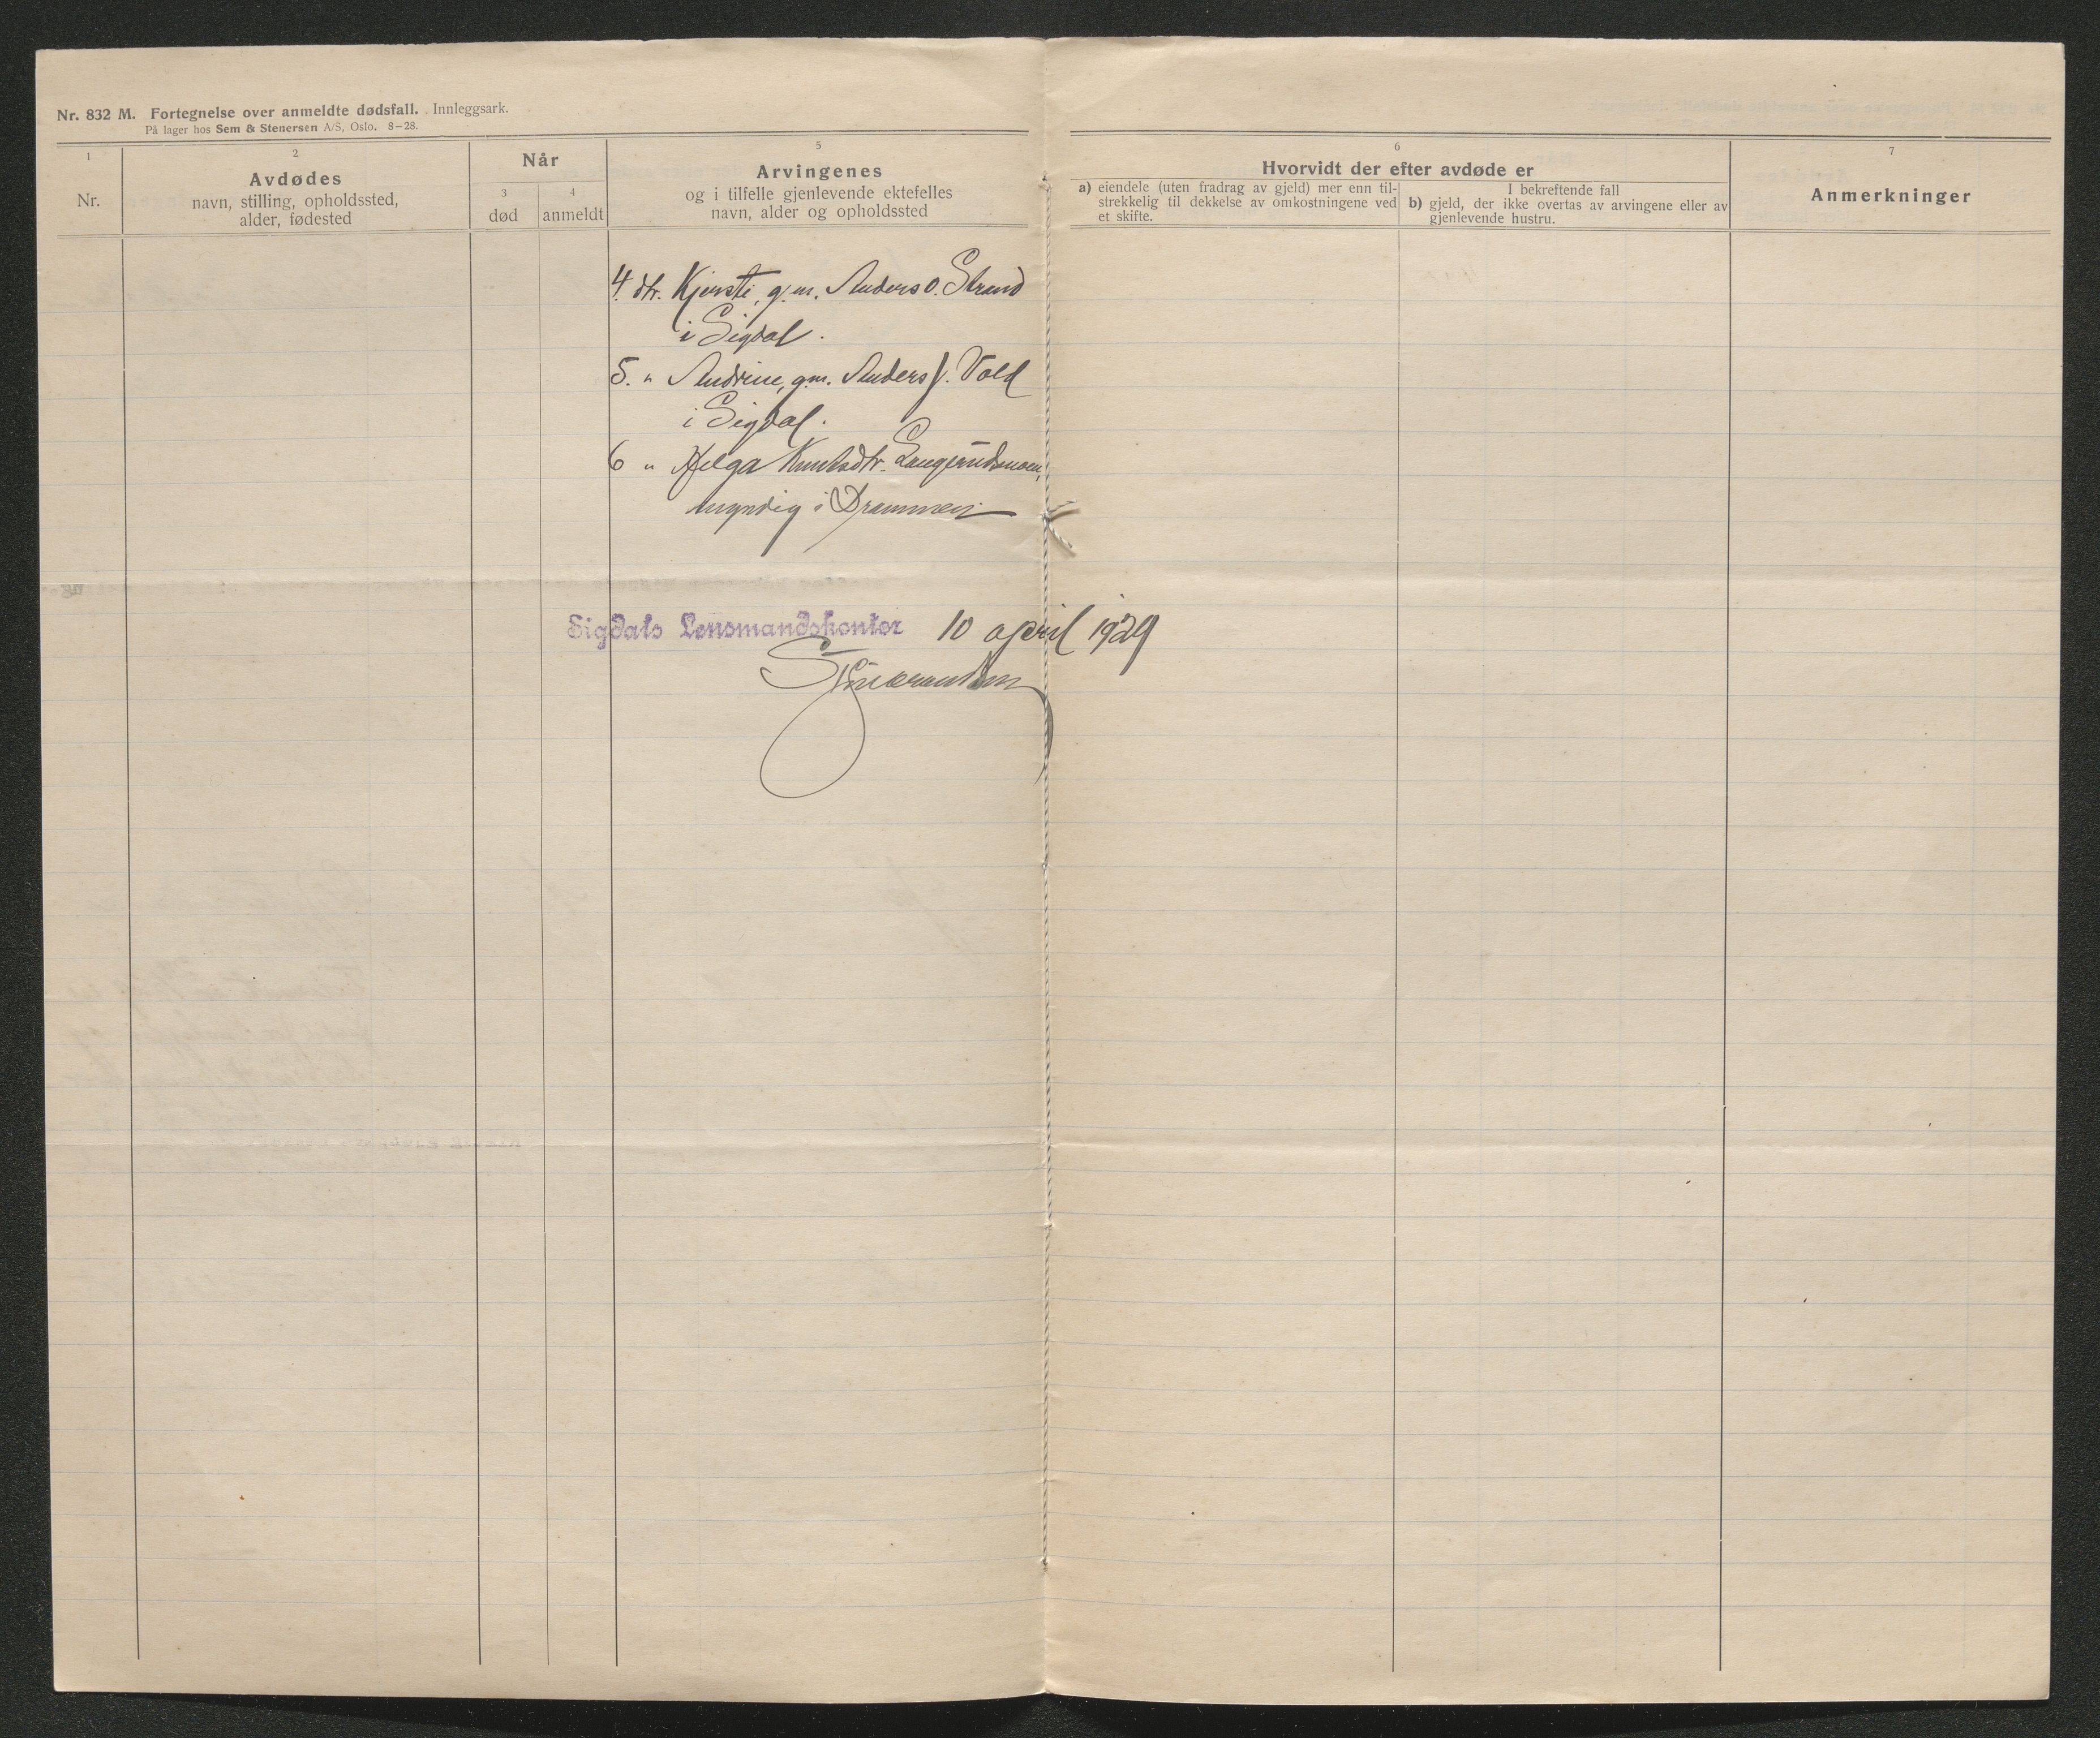 Nr. 832 M. Fortegnelse over anmeldte dødsfall. Innleggsark.
På lager hos Sem & Stenersen A/S, Oslo. 8—28.
1
Nr.
2
Avdødes
navn, stilling, opholdssted,
alder, fødested
Når
3
død
4
anmeldt
5
Arvingenes
og i tilfelle gjenlevende ektefelles
navn, alder og opholdssted
6
Hvorvidt der efter avdøde er
a) eiendele (uten fradrag av gjeld) mer enn til-
strekkelig til dekkelse av omkostningene ved
et skifte.
I bekreftende fall
b) gjeld, der ikke overtas av arvingene eller av
gjenlevende hustru.
7
Anmerkninger
4. dtr. Kjersti, g.m. Anders O. Strand
i Sigdal.
5. " Andrine, g.m. Anders J. Vold
i Sigdal.
6 " Helga Knutsdtr. Langerudmoen,
myndig i Drammen
Sigdals Lensmandskontor 10 april 1929